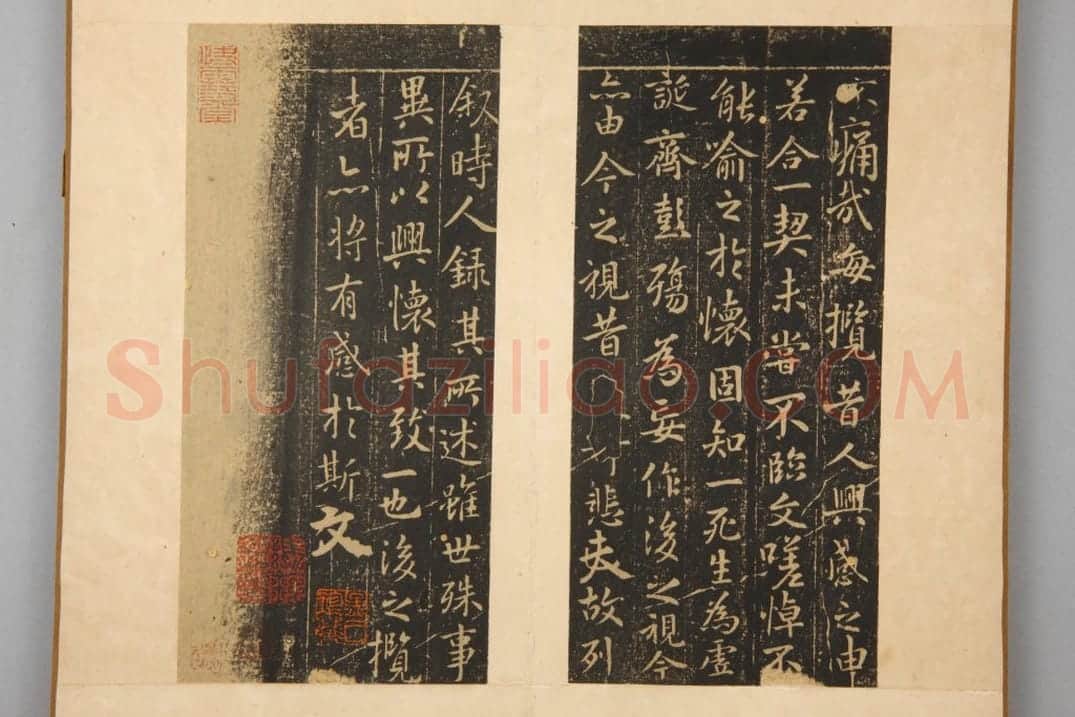 痛哉每攬昔人興感之由
若合一契未嘗不臨文嗟悼不
能喻之於懷固知一死生為虛
誕齊彭殤為妄作後之視今
亦由今之視昔悲夫故列
叙時人錄其所述雖世殊事
異所以興懷其致一也後之攬
者亦將有感於斯文
Shufaziliao.COM